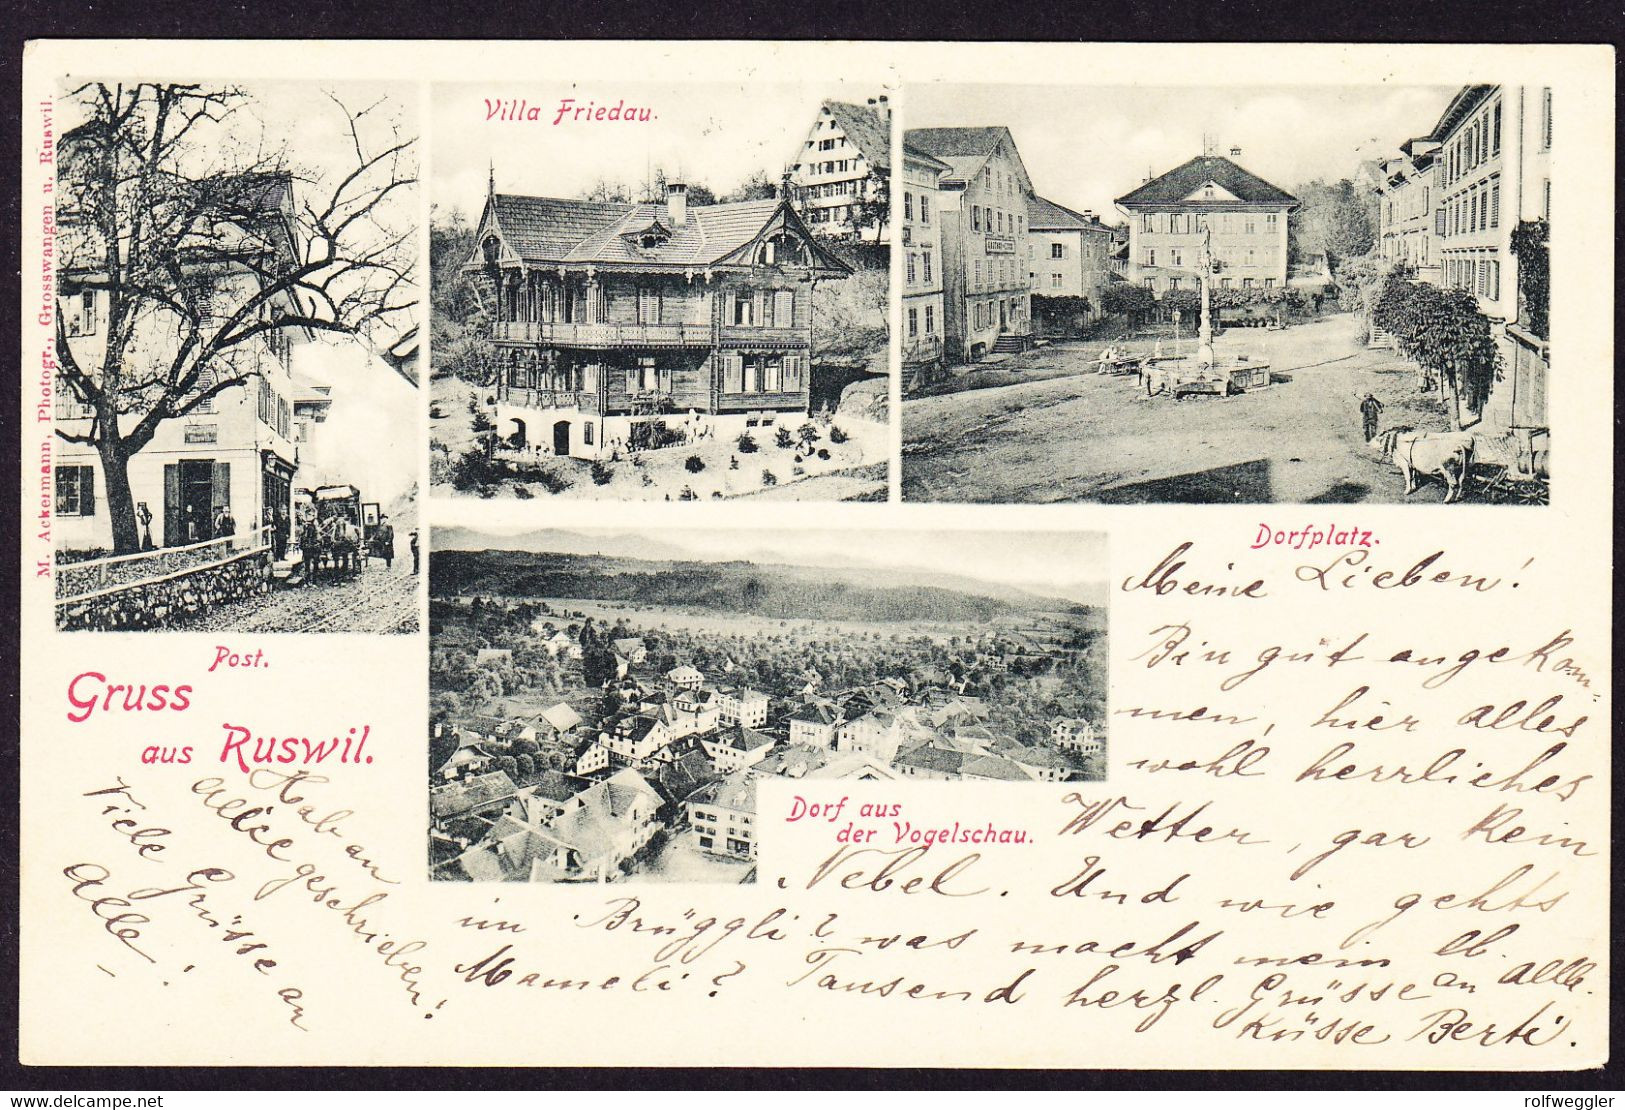 M. Ackermann, Photogr., Grosswangen u. Ruswil.
Villa Friedau.
Post.
Dorfplatz.
Gruss
aus Ruswil.
Dorf aus
der Vogelschau.
Meine Lieben!
Bin gut angekom-
men, hier alles
wohl herrliches
Wetter, gar kein
Nebel. Und wie gehts
im Brüggli? was macht mein lb.
Mameli? Tausend herzl. Grüsse an alle.
Küsse Berti.
Hab an
Alice geschrieben!
Viele Grüsse an
Alle!
www.delcampe.net
rolfweggler